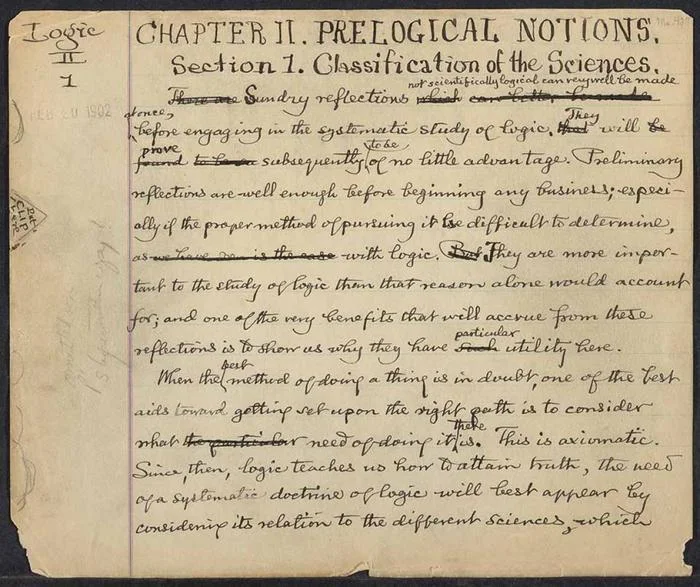 Logic
II
1
CHAPTER II. PRELOGICAL NOTIONS.
Section 1. Classification of the Sciences.
not scientifically logical can very well be made
There are Sundry reflections which can better be made
at once,
before engaging in the systematic study of logic. They that will be
prove to be
found to be subsequently of no little advantage. Preliminary
reflections are well enough before beginning any business; especi-
ally if the proper method of pursuing it be difficult to determine,
as we have seen is the case with logic. But They are more impor-
tant to the study of logic than that reason alone would account
for; and one of the very benefits that will accrue from these
particular
reflections is to show us why they have such utility here.
best
When the method of doing a thing is in doubt, one of the best
aids toward getting set upon the right path is to consider
there
what the particular need of doing it is. This is axiomatic.
Since, then, logic teaches us how to attain truth, the need
of a systematic doctrine of logic will best appear by
considering its relation to the different sciences, which
FEB 20 1902
Put
CLIP
Here